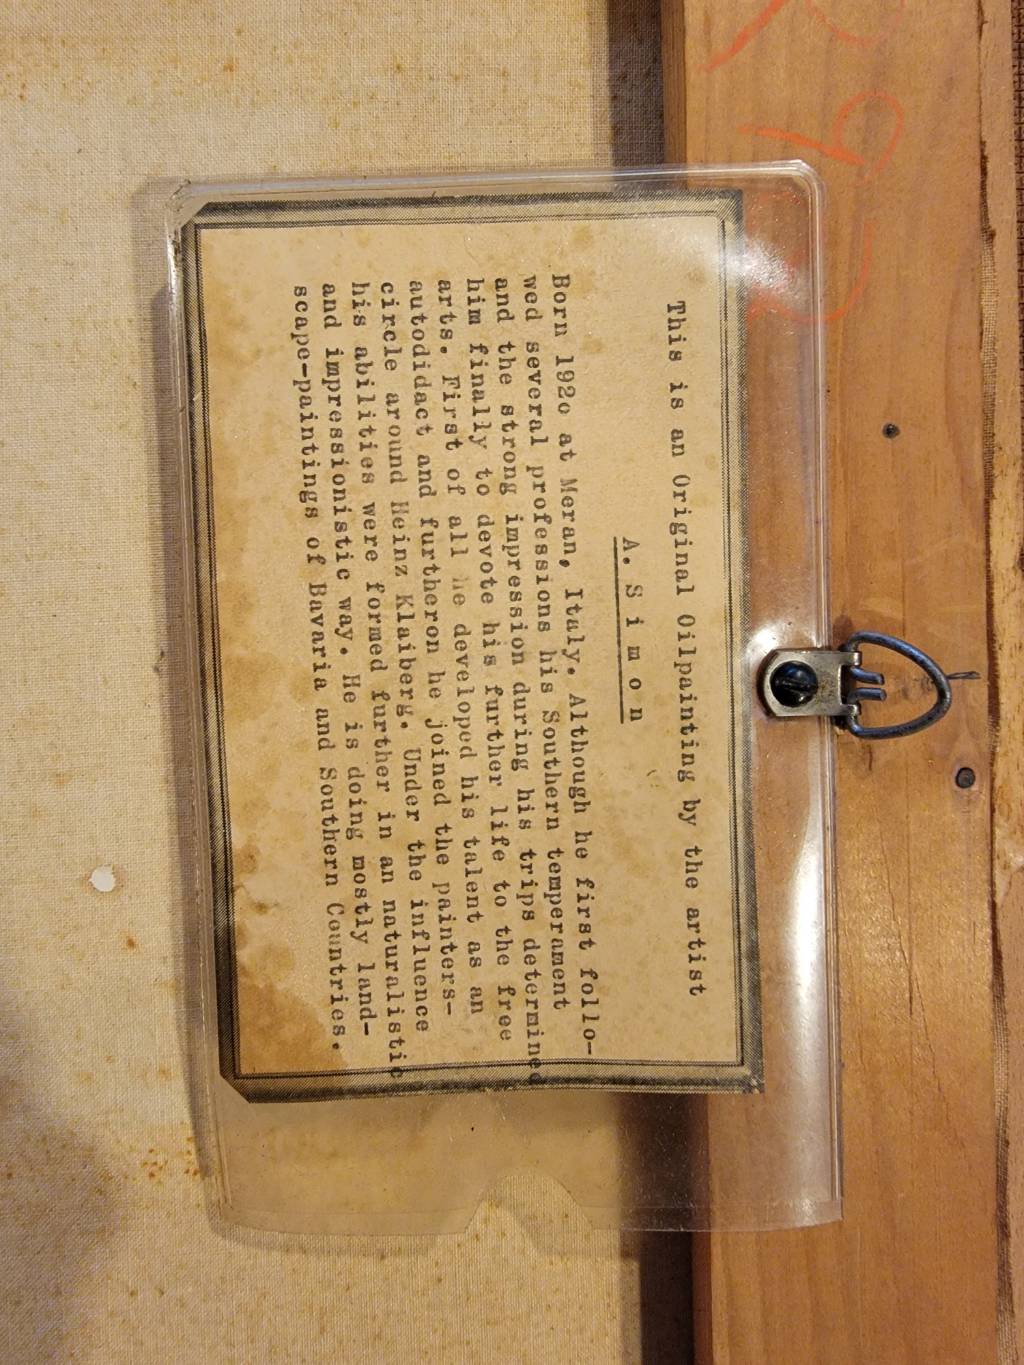 This is an Original Oilpainting by the artist
A. Simon
Born 192o at Meran, Italy. Although he first follo-
wed several professions his Southern temperament
and the strong impression during his trips determined
him finally to devote his further life to the free
arts. First of all he developed his talent as an
autodidact and furtheron he joined the painters-
circle around Heinz Klaiberg. Under the influence
his abilities were formed further in an naturalistic
and impressionistic way. He is doing mostly land-
scape-paintings of Bavaria and Southern Countries.